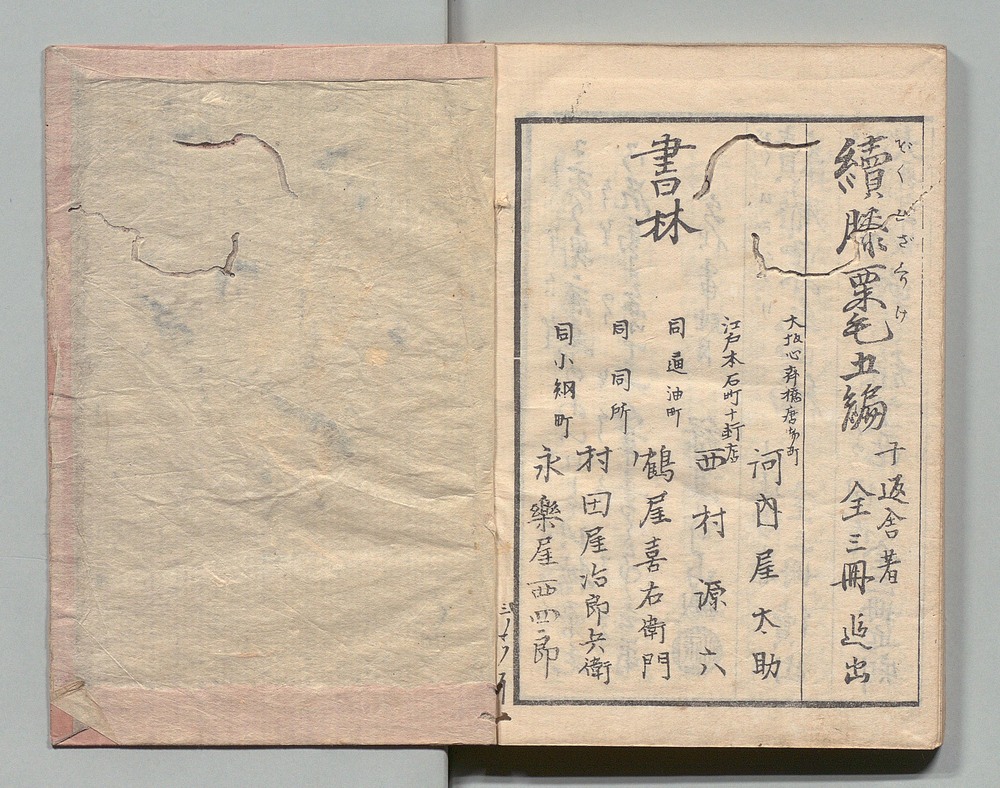 續膝栗毛五編
ぞくひざくりげ
十返舎著
全三冊 追出
書林
大坂心斎橋唐物町
河内屋太助
江戸本石町十軒店
西村源六
同通油町
鶴屋喜右衛門
同同所
村田屋治郎兵衛
同小網町
永樂屋西四郎